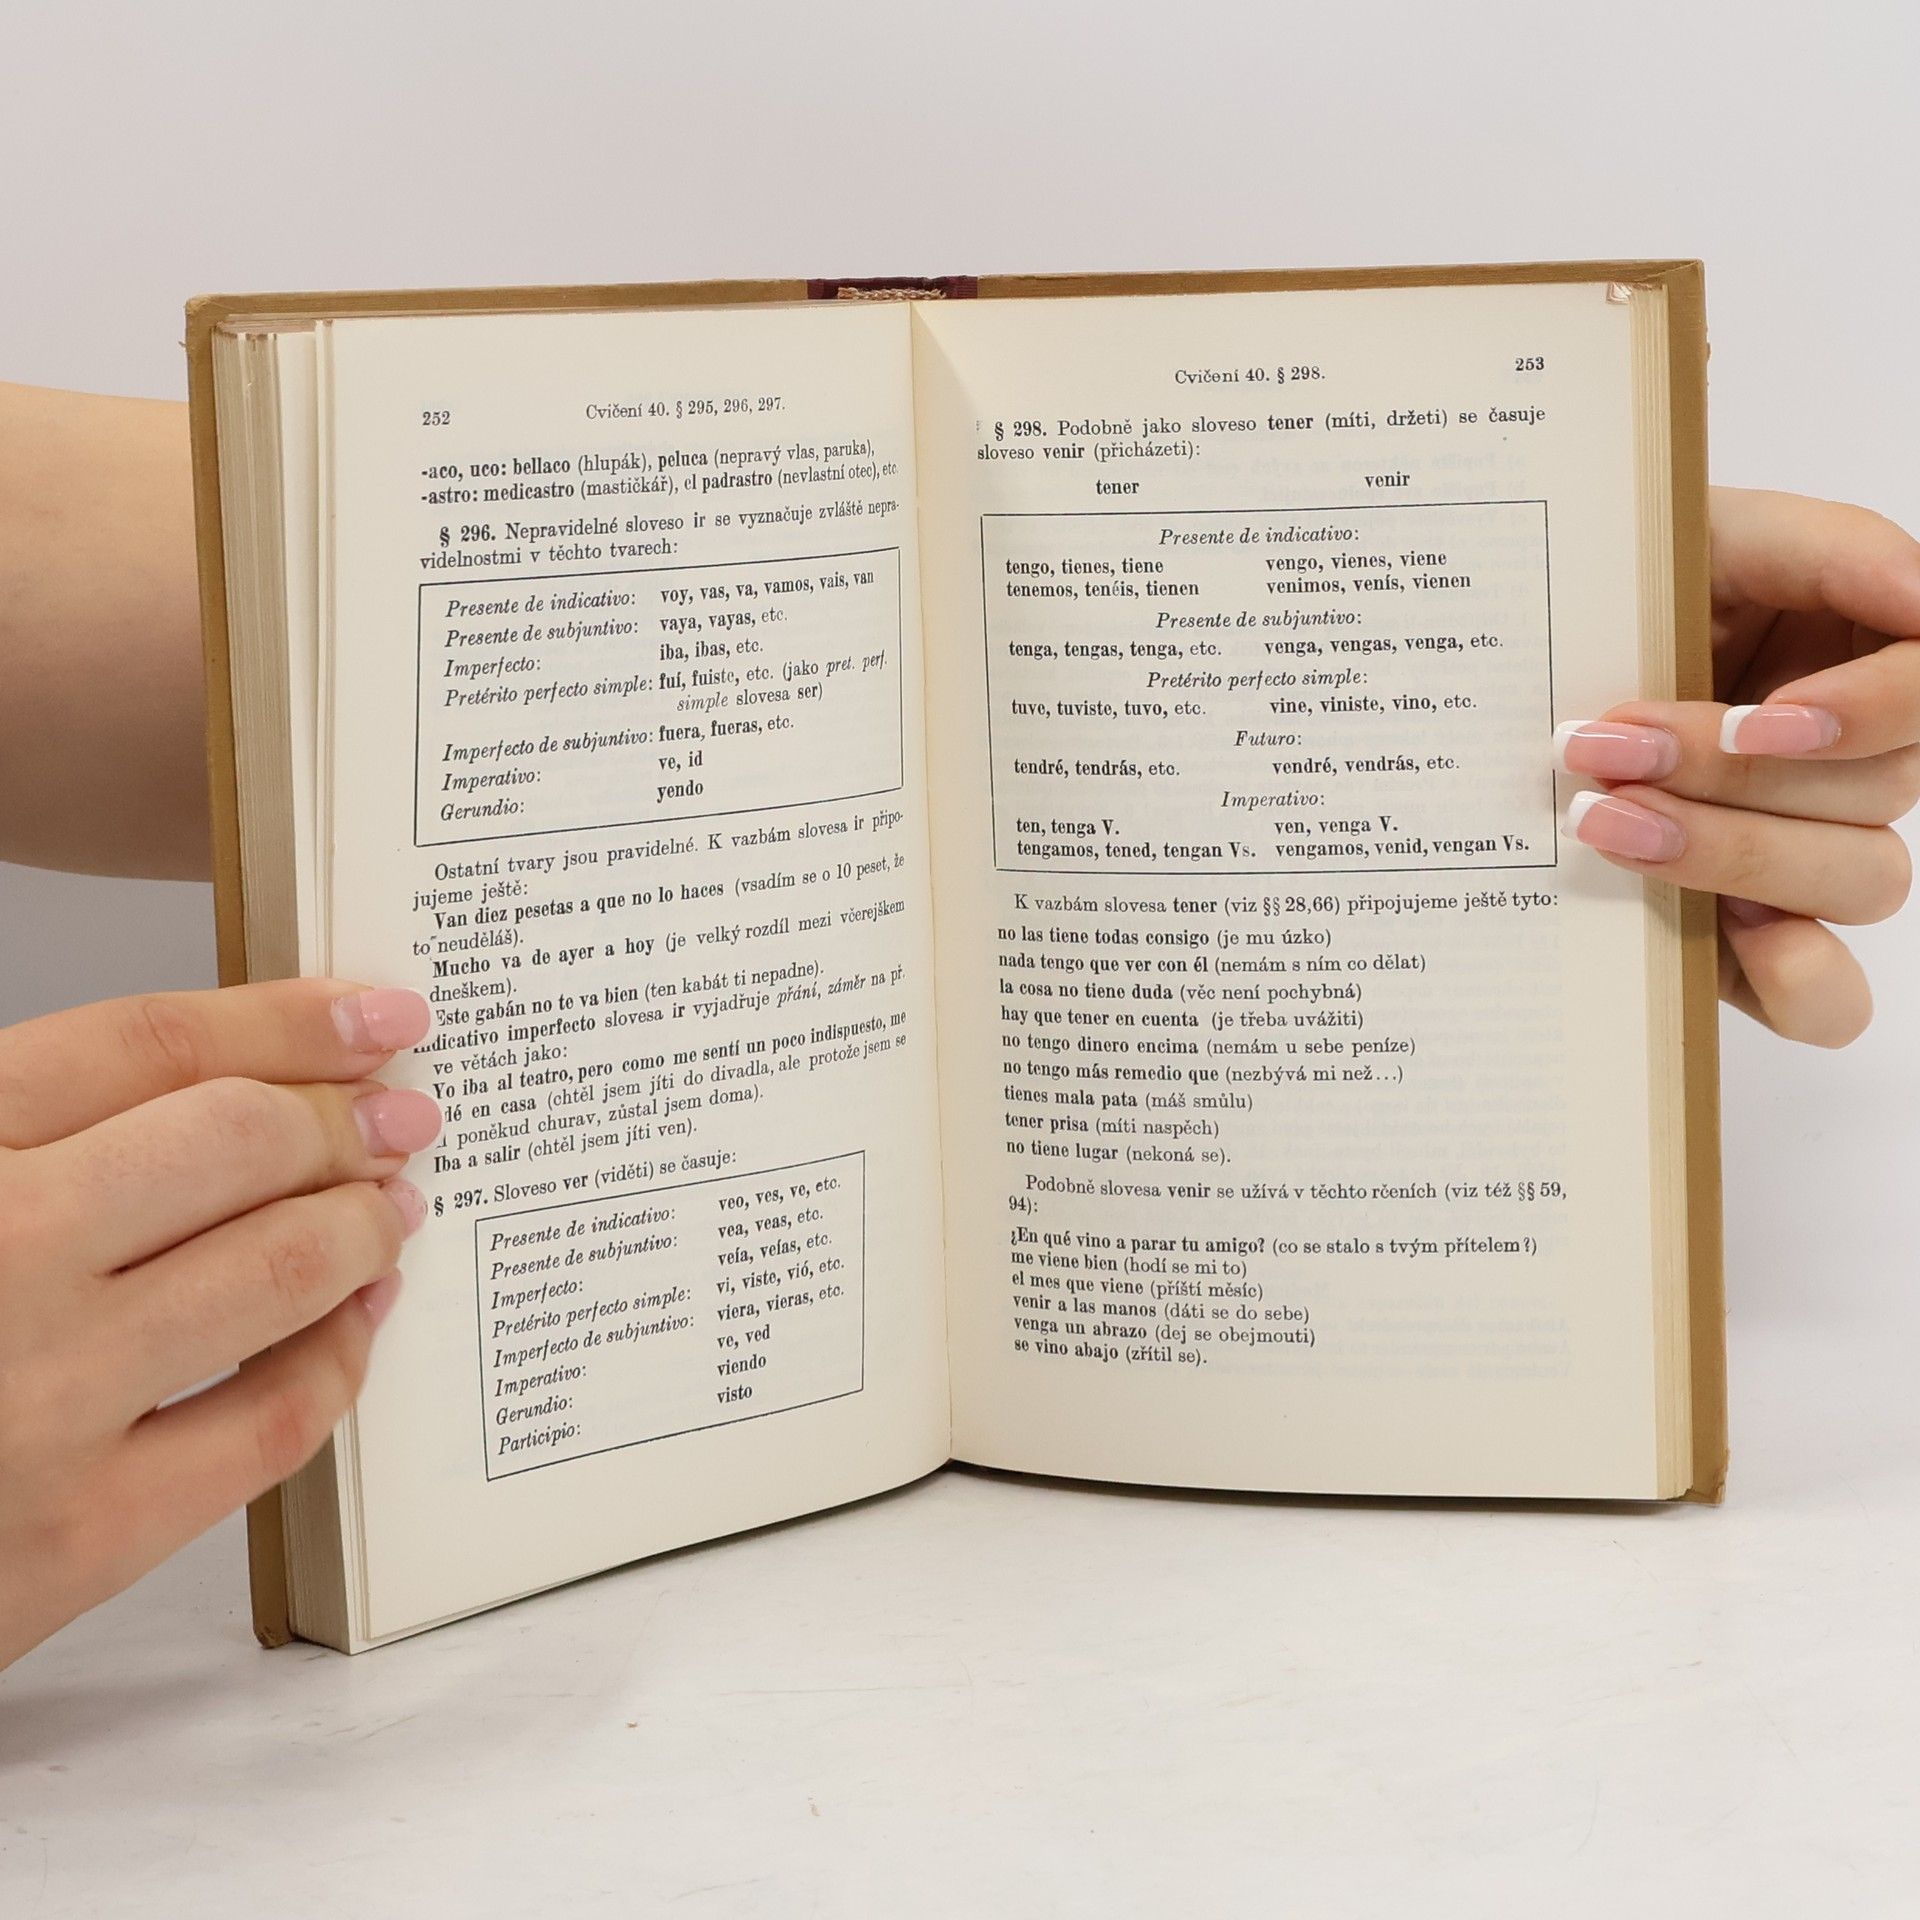 252
Cvičení 40. § 295, 296, 297.
-aco, uco: bellaco (hlupák), peluca (nepravý vlas, paruka),
-astro: medicastro (mastičkář), el padrastro (nevlastní otec), etc.
§ 296. Nepravidelné sloveso ir se vyznačuje zvláště nepra-
videlnostmi v těchto tvarech:
Presente de indicativo: voy, vas, va, vamos, vais, van
Presente de subjuntivo: vaya, vayas, etc.
Imperfecto: iba, ibas, etc.
Pretérito perfecto simple: fuí, fuiste, etc. (jako pret. perf.
simple slovesa ser)
Imperfecto de subjuntivo: fuera, fueras, etc.
Imperativo: ve, id
Gerundio: yendo
Ostatní tvary jsou pravidelné. K vazbám slovesa ir připo-
jujeme ještě:
Van diez pesetas a que no lo haces (vsadím se o 10 peset, že
to neuděláš).
Mucho va de ayer a hoy (je velký rozdíl mezi včerejškem
dneškem).
Este gabán no te va bien (ten kabát ti nepadne).
indicativo imperfecto slovesa ir vyjadřuje přání, záměr na př.
ve větách jako:
Yo iba al teatro, pero como me sentí un poco indispuesto, me
dé en casa (chtěl jsem jíti do divadla, ale protože jsem se
poněkud churav, zůstal jsem doma).
Iba a salir (chtěl jsem jíti ven).
§ 297. Sloveso ver (viděti) se časuje:
Presente de indicativo: veo, ves, ve, etc.
Presente de subjuntivo: vea, veas, etc.
Imperfecto: veía, veías, etc.
Pretérito perfecto simple: vi, viste, vió, etc.
Imperfecto de subjuntivo: viera, vieras, etc.
Imperativo: ve, ved
Gerundio: viendo
Participio: visto
Cvičení 40. § 298.
253
§ 298. Podobně jako sloveso tener (míti, držeti) se časuje
sloveso venir (přicházeti):
tener venir
Presente de indicativo:
tengo, tienes, tiene vengo, vienes, viene
tenemos, tenéis, tienen venimos, venís, vienen
Presente de subjuntivo:
tenga, tengas, tenga, etc. venga, vengas, venga, etc.
Pretérito perfecto simple:
tuve, tuviste, tuvo, etc. vine, viniste, vino, etc.
Futuro:
tendré, tendrás, etc. vendré, vendrás, etc.
Imperativo:
ten, tenga V. ven, venga V.
tengamos, tened, tengan Vs. vengamos, venid, vengan Vs.
K vazbám slovesa tener (viz §§ 28,66) připojujeme ještě tyto:
no las tiene todas consigo (je mu úzko)
nada tengo que ver con él (nemám s ním co dělat)
la cosa no tiene duda (věc není pochybná)
hay que tener en cuenta (je třeba uvážiti)
no tengo dinero encima (nemám u sebe peníze)
no tengo más remedio que (nezbývá mi než...)
tienes mala pata (máš smůlu)
tener prisa (míti naspěch)
no tiene lugar (nekoná se).
Podobně slovesa venir se užívá v těchto rčeních (viz též §§ 59,
94):
¿En qué vino a parar tu amigo? (co se stalo s tvým přítelem?)
me viene bien (hodí se mi to)
el mes que viene (příští měsíc)
venir a las manos (dáti se do sebe)
venga un abrazo (dej se obejmouti)
se vino abajo (zřítil se).